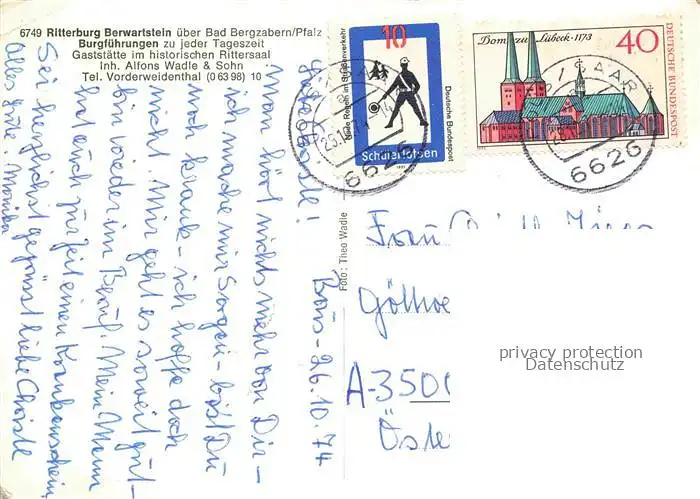 6749 Ritterburg Berwartstein über Bad Bergzabern/Pfalz
Burgführungen zu jeder Tageszeit
Gaststätte im historischen Rittersaal
Inh. Alfons Wadle & Sohn
Tel. Vorderweidenthal (0 63 98) 10
Bous - 26.10.74
Liebe Christle!
Man hört nichts mehr von Dir -
ich mache mir Sorgen - bist Du
noch krank - ich hoffe doch
nicht. Mir geht es soweit gut -
bin wieder im Beruf. Mein Mann
hat auch zur Zeit einen Krankenschein,
Sei herzlichst gegrüsst liebe Christle
Alles gute. Monika
Foto: Theo Wadle
10
Neue Regeln im Straßenverkehr
Deutsche Bundespost
Schülerlotsen
Dom zu Lübeck · 1173
40
DEUTSCHE BUNDESPOST
SAAR
6626
6626
Frau
A-3500
privacy protection
Datenschutz